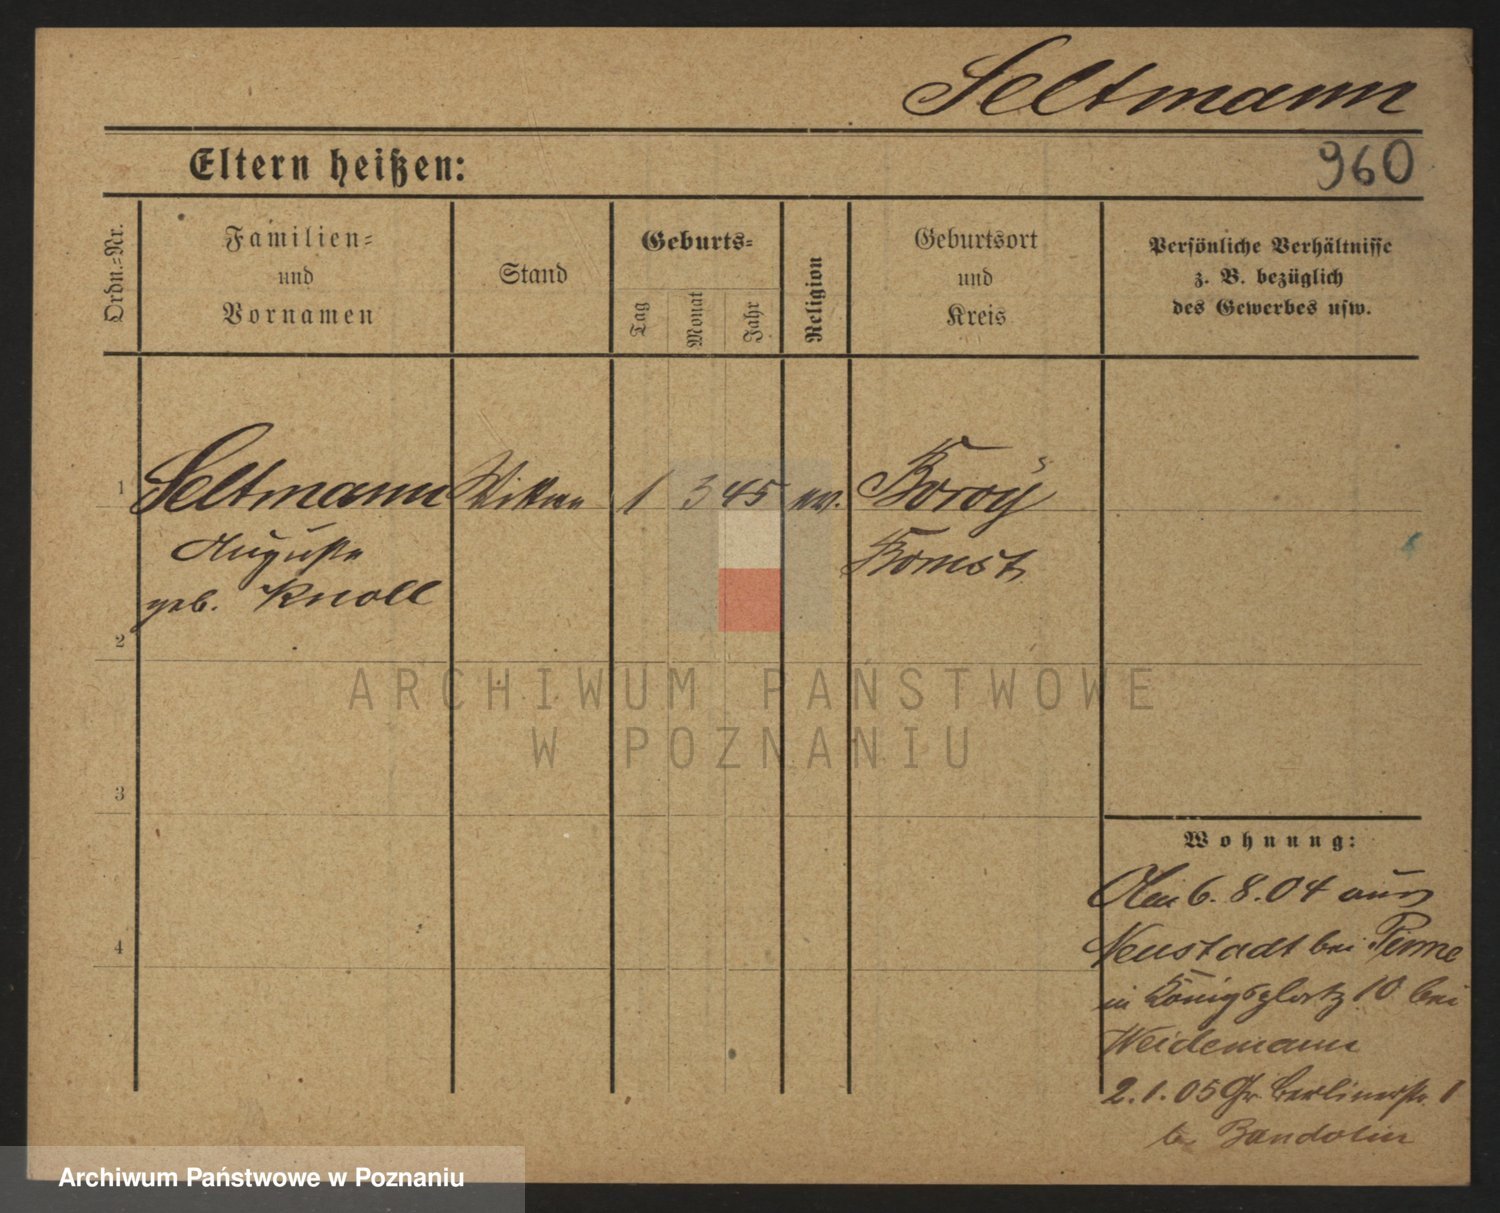 Seltmann
Eltern heißen:
960
Ordn.=Nr.
Familien=
und
Vornamen
Stand
Geburts=
Tag
Monat
Jahr
Religion
Geburtsort
und
Kreis
Persönliche Verhältnisse
z. B. bezüglich
des Gewerbes usw.
1
Seltmann
1 3 45
ev.
Boruy
Auguste
Bomst
geb. Knoll
2
ARCHIWUM PAŃSTWOWE
W POZNANIU
3
Wohnung:
6. 8. 04 aus
4
Neustadt bei Pinne
in Königsplatz 10 bei
Weidemann
2. 1. 05 Gr. Berlinerstr. 1
bei Bandolin
Archiwum Państwowe w Poznaniu